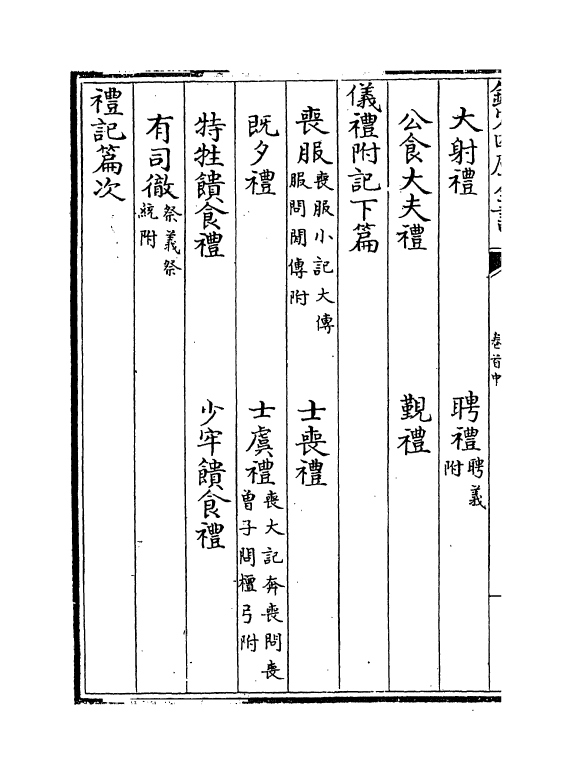 欽定四庫全書 卷首中
大射禮 聘禮 聘義附
公食大夫禮 覲禮
儀禮附記下篇
喪服 喪服小記大傳服問閒傳附 士喪禮
既夕禮 士虞禮 喪大記奔喪問喪曾子問檀弓附
特牲饋食禮 少牢饋食禮
有司徹 祭義祭統附
禮記篇次